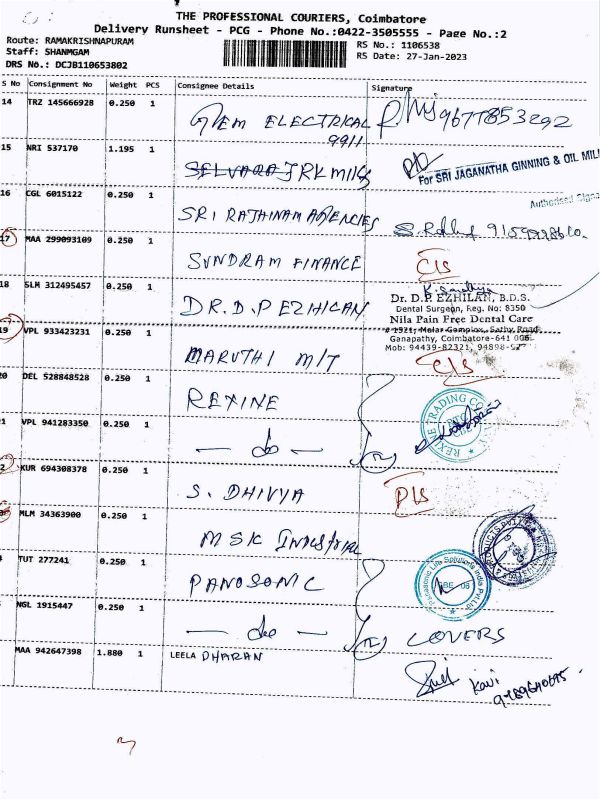 THE PROFESSIONAL COURIERS, Coimbatore
Delivery Runsheet - PCG - Phone No.:0422-3505555 - Page No.:2
Route: RAMAKRISHNAPURAM
Staff: SHANMGAM
DRS No.: DCJB110653802
RS No.: 1106538
RS Date: 27-Jan-2023
S No Consignment No Weight PCS Consignee Details Signature
14 TRZ 145666928 0.250 1 GEM ELECTRICAL 9677853292
9911
15 NRI 537170 1.195 1 SELVARA JRK MILLS
For SRI JAGANATHA GINNING & OIL MIL
Authorised Signa
16 CGL 6015122 0.250 1 SRI RATHINAM AGENCIES
17 MAA 299093109 0.250 1 SUNDRAM FINANCE C/S
18 SLM 312495457 0.250 1 DR. D. P EZHILAN
Dr. D.P. EZHILAN, B.D.S.
Dental Surgeon, Reg. No: 8350
Nila Pain Free Dental Care
# 1521, Malar Complex, Sathy Road
Ganapathy, Coimbatore-641 006.
Mob: 94439-82321, 94898-
19 VPL 933423231 0.250 1 MARUTHI M/T C/S
20 DEL 528848528 0.250 1 REXINE
REXINE TRADING CO
CBE
1 VPL 941283350 0.250 1 — do —
2 KUR 694308378 0.250 1 S. DHIVYA D/S
MLM 34363900 0.250 1 MSK INDUSTRIAL
TUT 277241 0.250 1 PANOSONIC
Panasonic Life Solutions India Pvt Ltd
NGL 1915447 0.250 1 — do — COVERS
MAA 942647398 1.880 1 LEELA DHARAN
Kavi